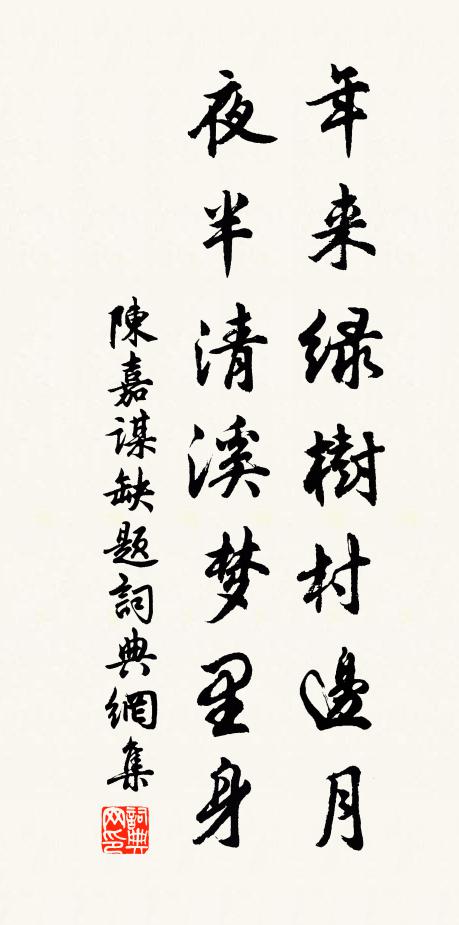 年来绿樹村邊月
夜半清溪梦里身
陳嘉谋缺题詞典網集
詞典网印